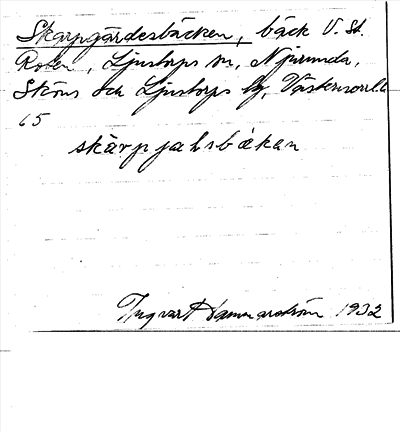 Skarpgärdesbäcken, bäck V. St.
Roten, Ljustorps sn, Njurunda,
Sköns och Ljustorps hg, Västernorrl. l.
65
skàrpjalsbækan
Ingvart Hammarström 1932